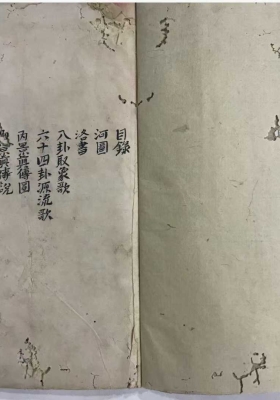 目錄
河圖
洛書
八卦取象歌
六十四卦源流歌
圖
說